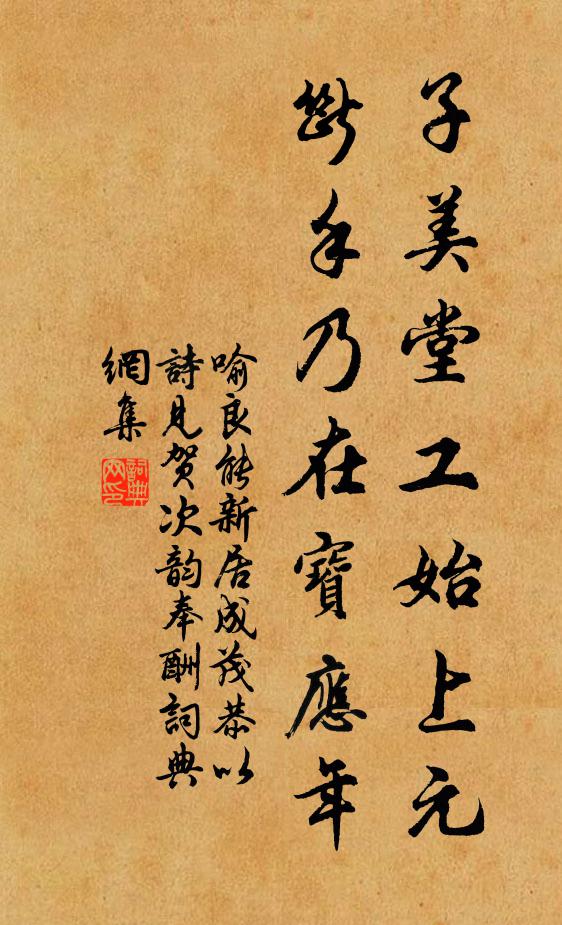 子美堂工始上元
斷手乃在寶應年
喻良能新居成茂恭以
詩見賀次韵奉酬詞典
網集
詞典
网印